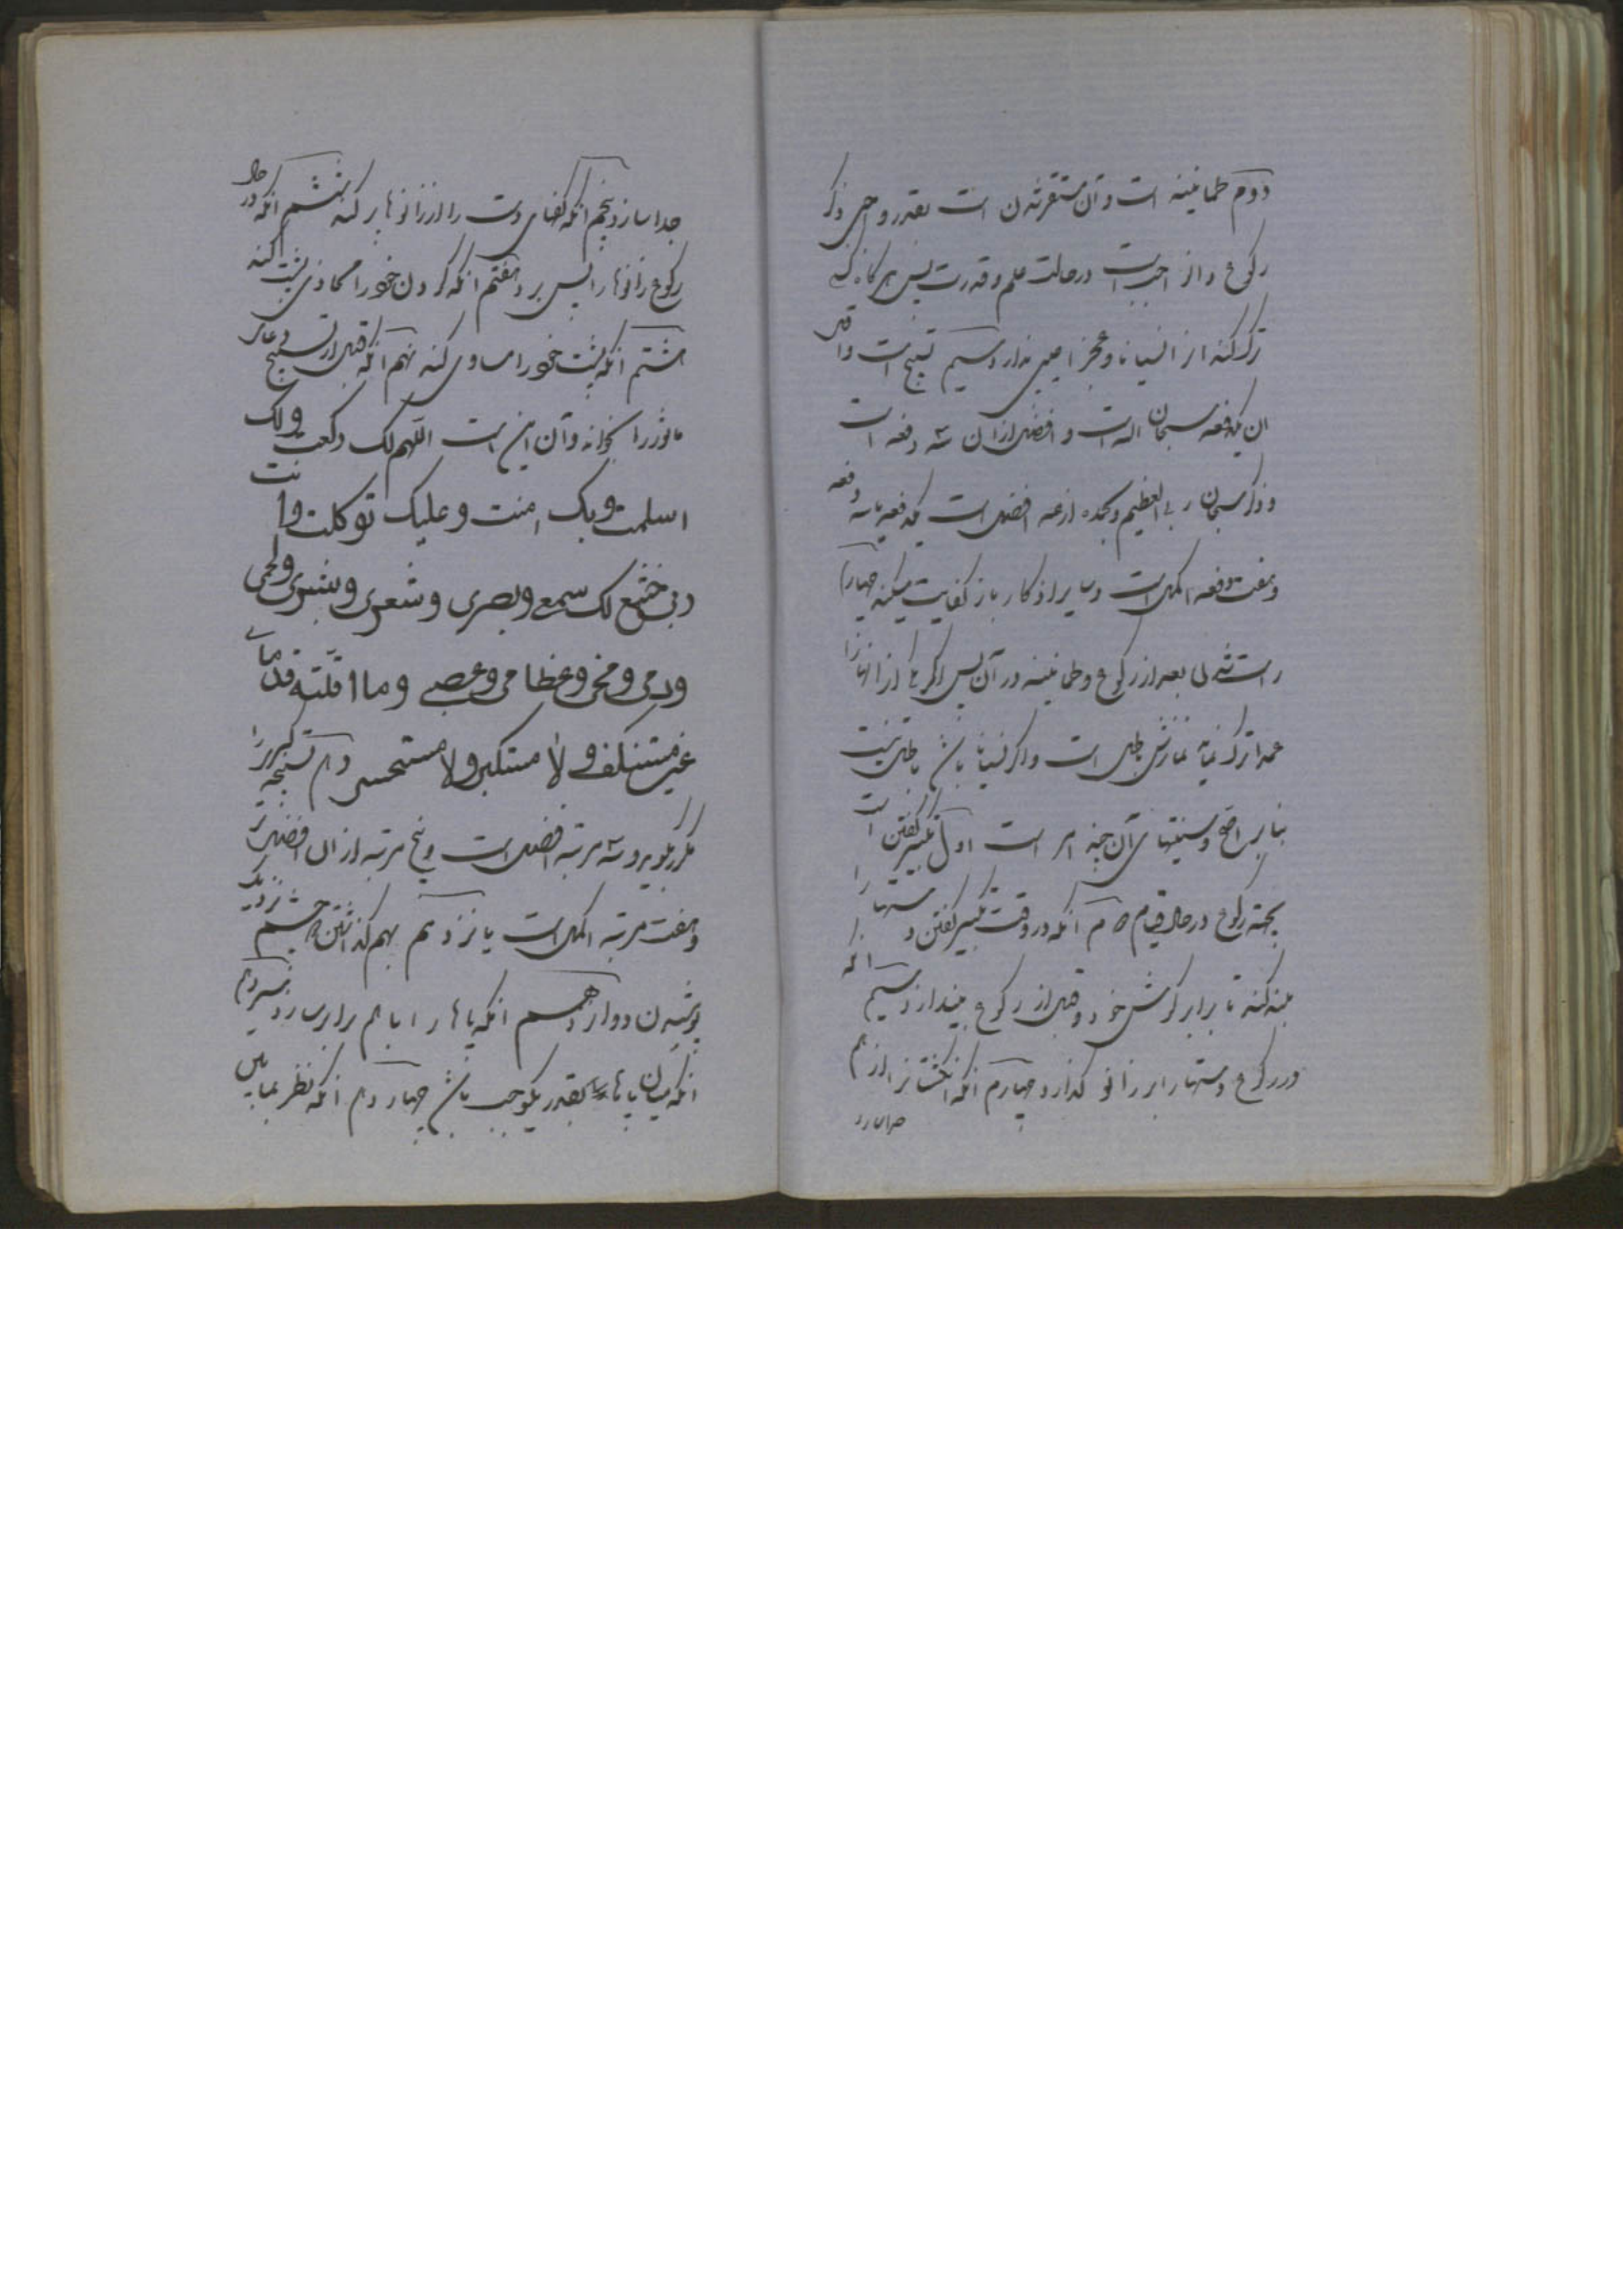 دوم طمانینه است و آن مستقر شدن است بقدر واجبی ذکر
رکوع و آن واجبست در حالت علم و قدرت پس هر گاه که
ترک کند از نسیانا و عجزا عیبی ندارد سیم تسبیح است و اقل
ان یکدفعه سبحان الله است و افضل از ان سه دفعه است
و ذکر سبحان ربی العظیم و بحمده از همه افضل است یکدفعه یا سه دفعه
و هفت دفعه اکمل است و سایر اذکار باز کفایت میکند چهارم
راست شدن بعد از رکوع و طمانینه در آن پس اکر یکی از اینها را
عمدا ترک نماید نمازش باطل است و اکر نسیانا باشد باطل نیست
بنا بر اصح و سنتهای آن چند امر است اول تکبیر کفتن است
بجهة رکوع در حال قیام دوم آنکه در وقت تکبیر کفتن دستها را
بلند کند تا برابر کوش خود و قبل از رکوع بیندازد سیم انکه
در رکوع دستها را بر زانو کذارد چهارم انکه انکشتانرا از هم
جدا سازد پنجم انکه کفهای دست را از زانوها پر کند ششم انکه در حال
رکوع زانوها را پس برد هفتم انکه کردن خود را محاذی پشت کند
هشتم انکه پشت خود را مساوی کند نهم انکه قبل از تسبیح دعای
ماثور را بخواند و آن این است اللهم لک رکعت و لک
اسلمت و بک امنت و علیک توکلت و انت
ربی خشع لک سمعی و بصری و شعری و بشری و لحمی
و دمی و مخی و عظامی و عصبی و ما اقلته قدمای
غیر مستنکف و لا مستکبر و لا مستحسر دهم تسبیح کبیر را
مکرر بکوید و سه مرتبه افضل است و پنج مرتبه از ان افضل
و هفت مرتبه اکمل است یانزدهم بهم کذاشتن چشم نزدیک
پوشیدن دوازدهم انکه پاها را با هم برابر سازد سیزدهم
انکه میان پاها بقدر یکوجب باشد چهاردهم انکه نظر بمابین